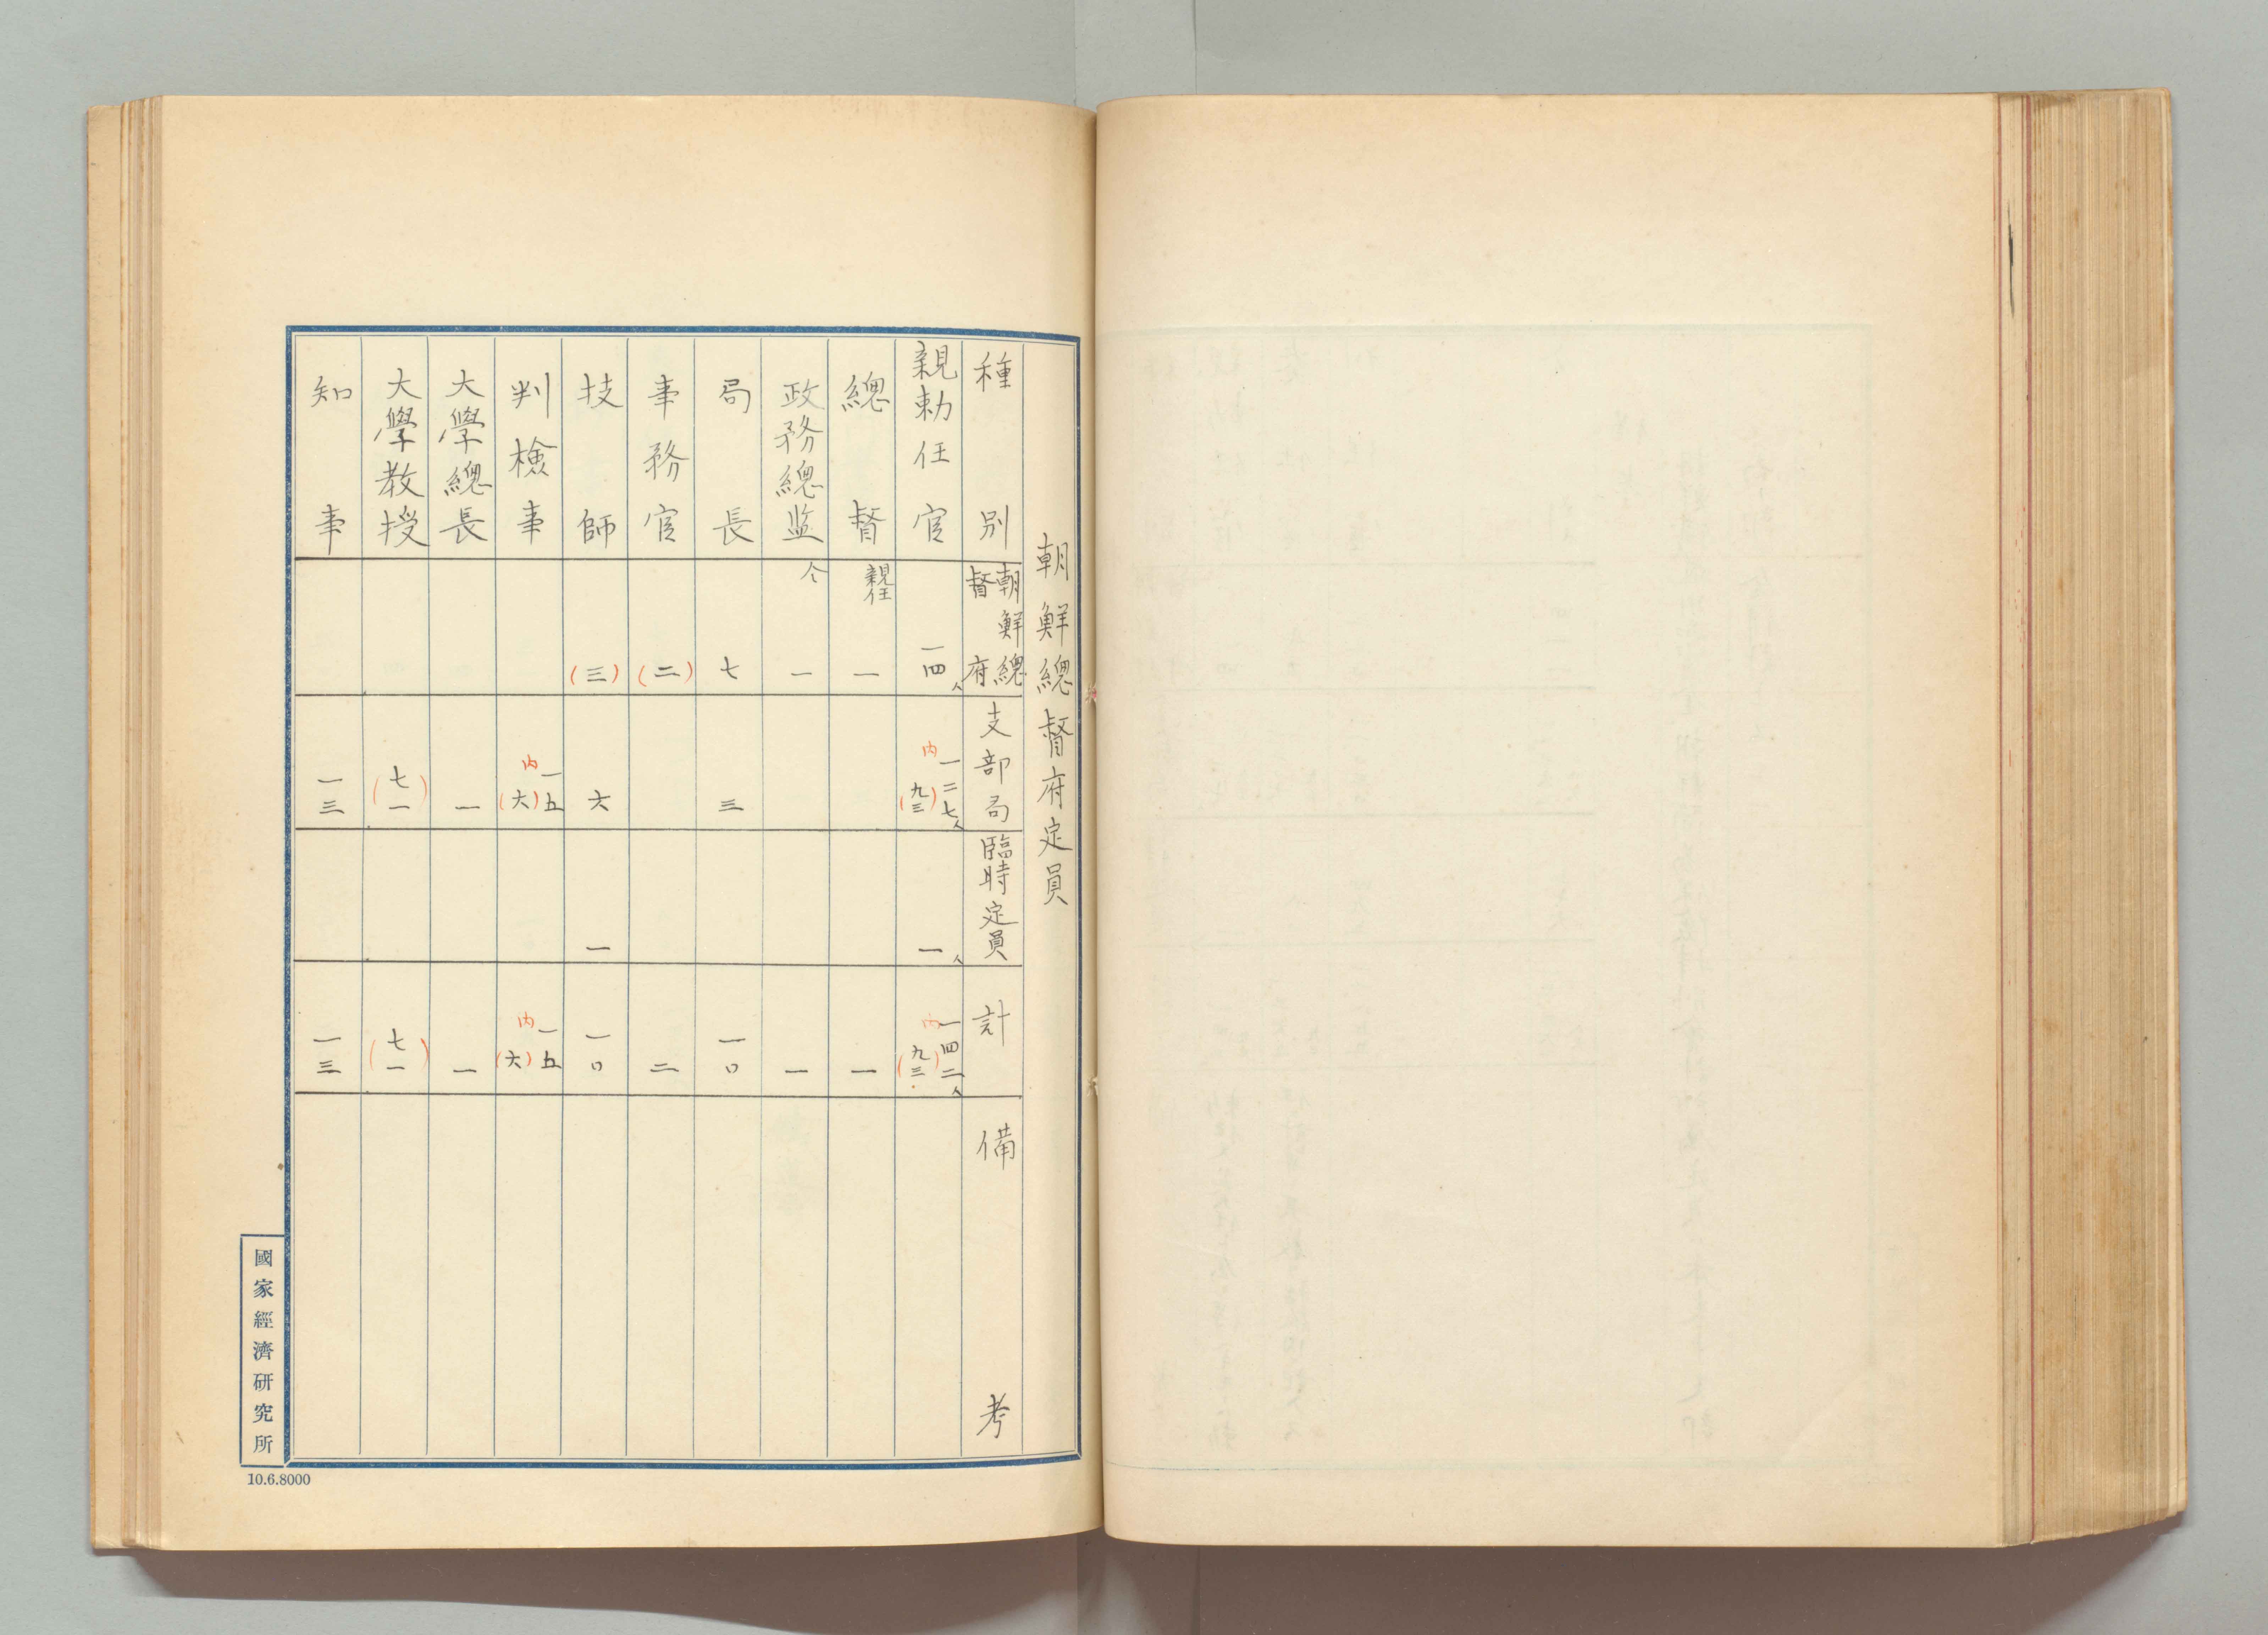 朝鮮總督府定員
種別 朝鮮總督府 支部局 臨時定員 計 備考
親勅任官 一四人 一二七人 内(九三) 一人 一四二人 内(九三)
總督 親任 一 一
政務總監 仝 一 一
局長 七 三 一〇
事務官 (二) 二
技師 (三) 六 一 一〇
判檢事 一五 内(六) 一五 内(六)
大學總長 一 一
大學教授 (七一) (七一)
知事 一三 一三
國家經濟研究所
10.6.8000